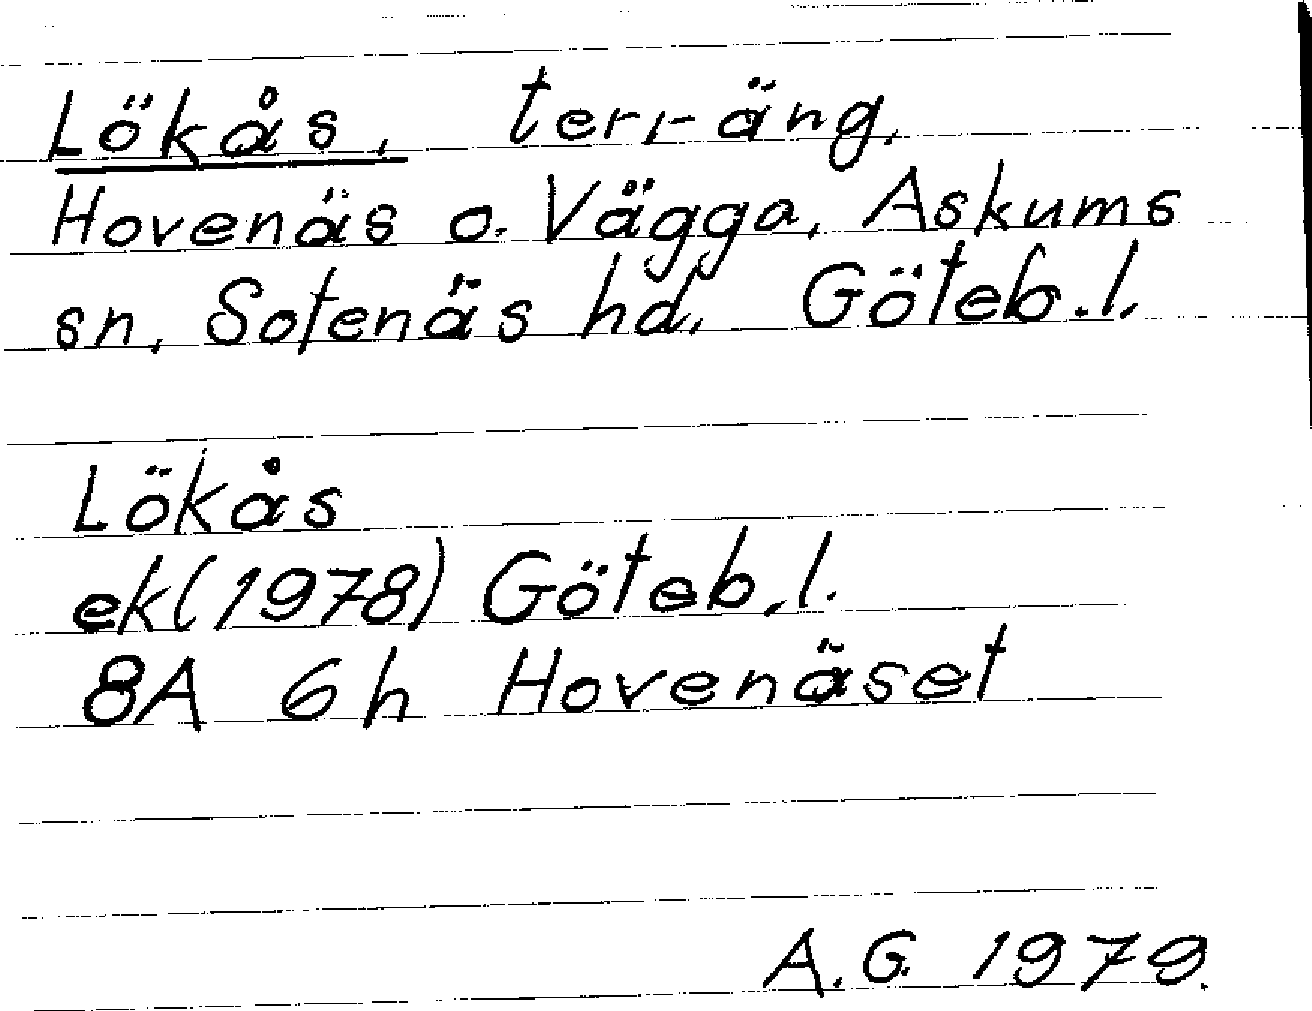 Lökås, terräng,
Hovenäs o. Vägga, Askums
sn, Sotenäs hd, Göteb.l.
Lökås
ek(1978) Göteb.l.
8A 6h Hovenäset
A.G. 1979.